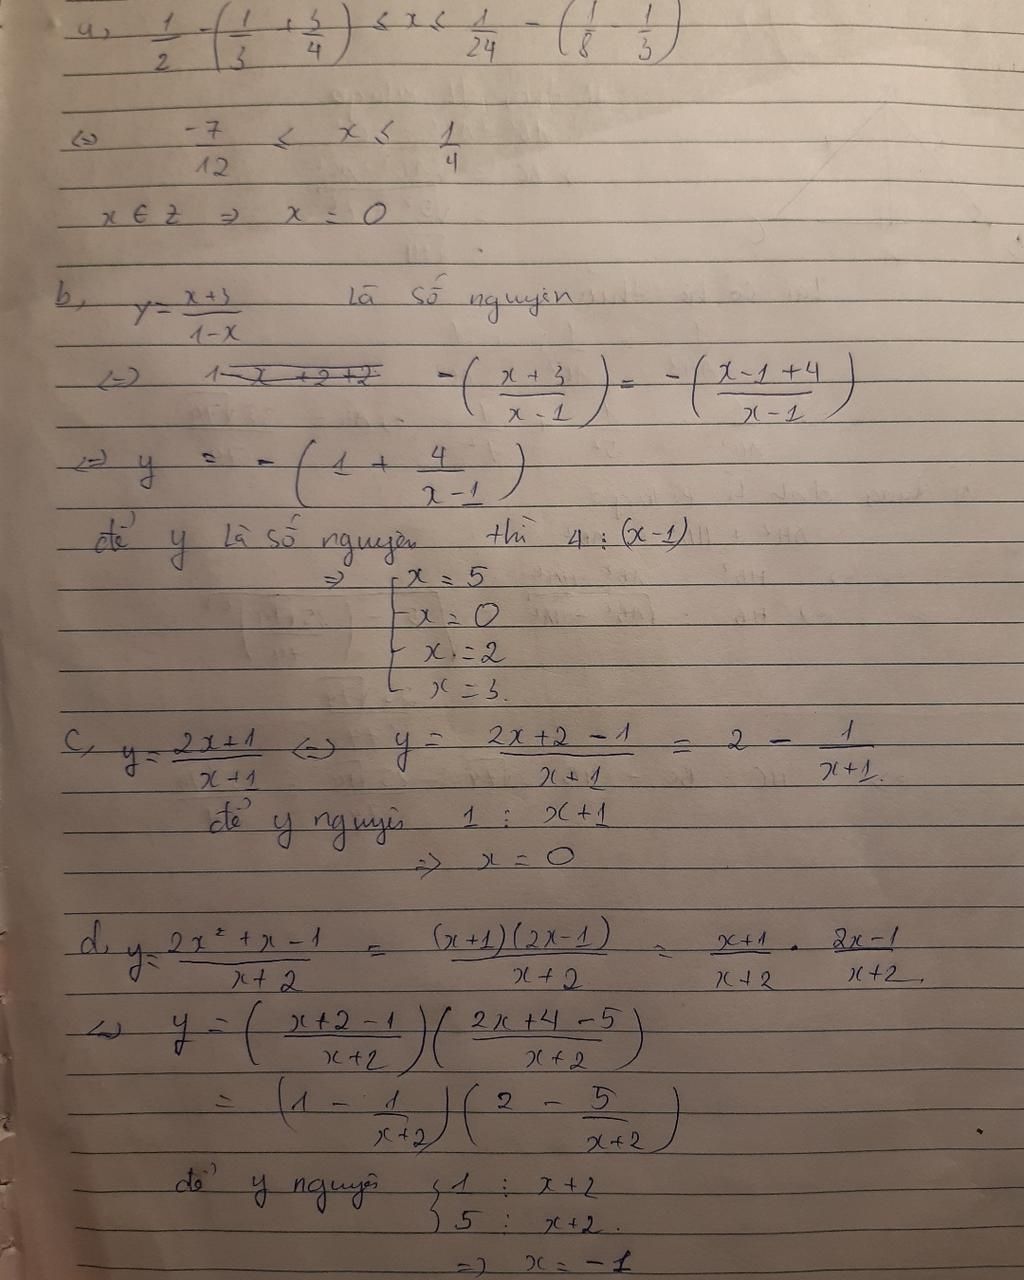 a, 1/2 - (1/3 + 3/4) ≤ x ≤ 1/24 - (1/8 - 1/3)
⇔ -7/12 ≤ x ≤ 1/4
x ∈ Z ⇒ x = 0
b, y = (x+3)/(1-x) là số nguyên
⇔ - ((x+3)/(x-1)) = - ((x-1+4)/(x-1))
⇔ y = - (1 + 4/(x-1))
để y là số nguyên thì 4 ⋮ (x-1)
⇒ [ x = 5
x = 0
x = 2
x = 3.
c, y = (2x+1)/(x+1) ⇔ y = (2x+2-1)/(x+1) = 2 - 1/(x+1).
để y nguyên 1 ⋮ x+1
⇒ x = 0
d, y = (2x² + x - 1)/(x+2) = ((x+1)(2x-1))/(x+2) = (x+1)/(x+2) . (2x-1)/(x+2).
⇔ y = ((x+2-1)/(x+2)) ((2x+4-5)/(x+2))
= (1 - 1/(x+2)) (2 - 5/(x+2))
để y nguyên { 1 ⋮ x+2
5 ⋮ x+2.
⇒ x = -1